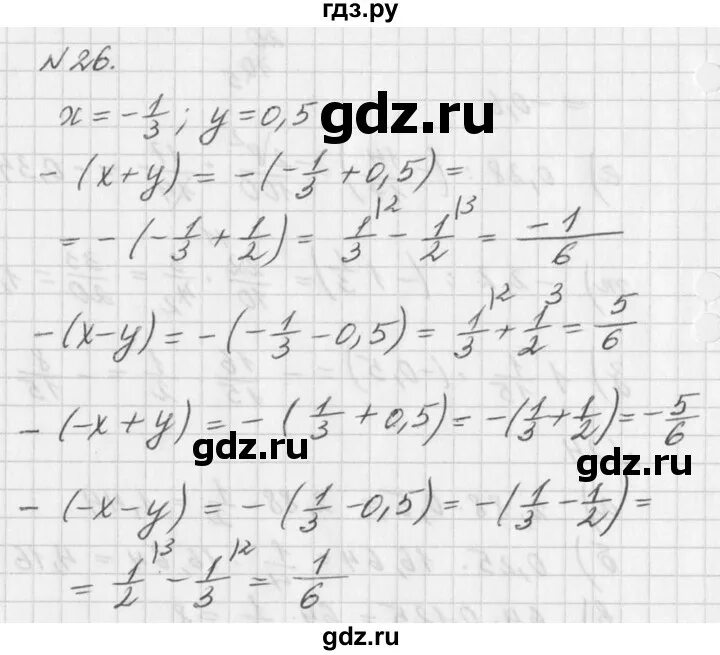 гдз.ру
№26.
x = -1/3; y = 0,5
gdz.ru
- (x+y) = -(-1/3 + 0,5) =
= -(-1/3 + 1/2) = 1/3|2 - 1/2|3 = -1/6
-(x-y) = -(-1/3 - 0,5) = 1/3|2 + 1/2 3 = 5/6
- (-x+y) = -(1/3 + 0,5) = -(1/3 + 1/2) = -5/6
gdz.ru
gdz.ru
- (-x-y) = -(1/3 - 0,5) = -(1/3 - 1/2) =
= 1/2|3 - 1/3|2 = 1/6
gdz.ru